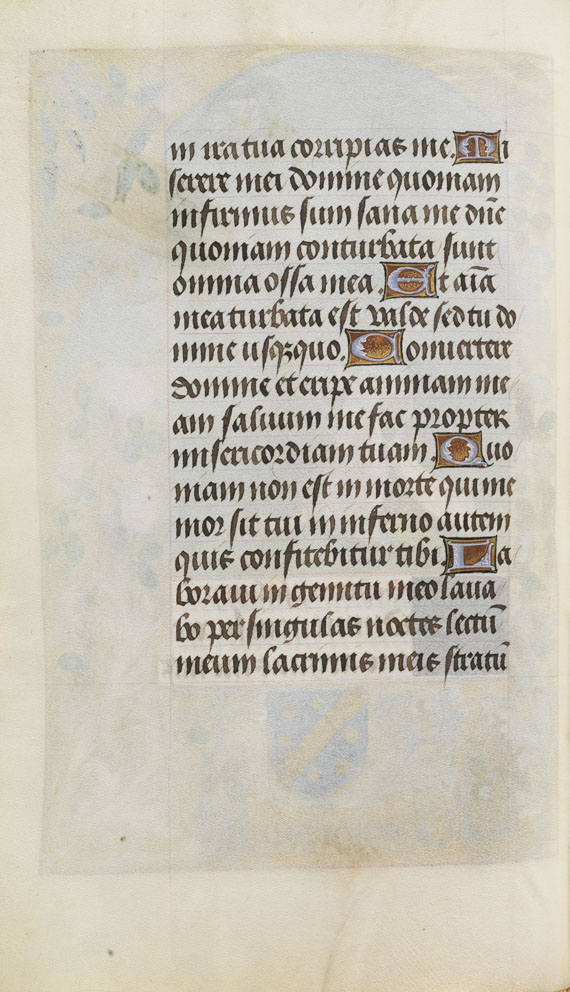 in ira tua corripias me. Mi
serere mei domine quoniam
infirmus sum sana me dn̄e
quoniam conturbata sunt
omnia ossa mea. Et aīa
mea turbata est valde sed tu do
mine usq̨quo. Conuertere
domine et eripe animam me
am saluum me fac propter
misericordiam tuam. Quo
niam non est in morte qui me
mor sit tui in inferno autem
quis confitebitur tibi. La
boraui in gemitu meo laua
bo per singulas noctes lectū
meum lacrimis meis stratū